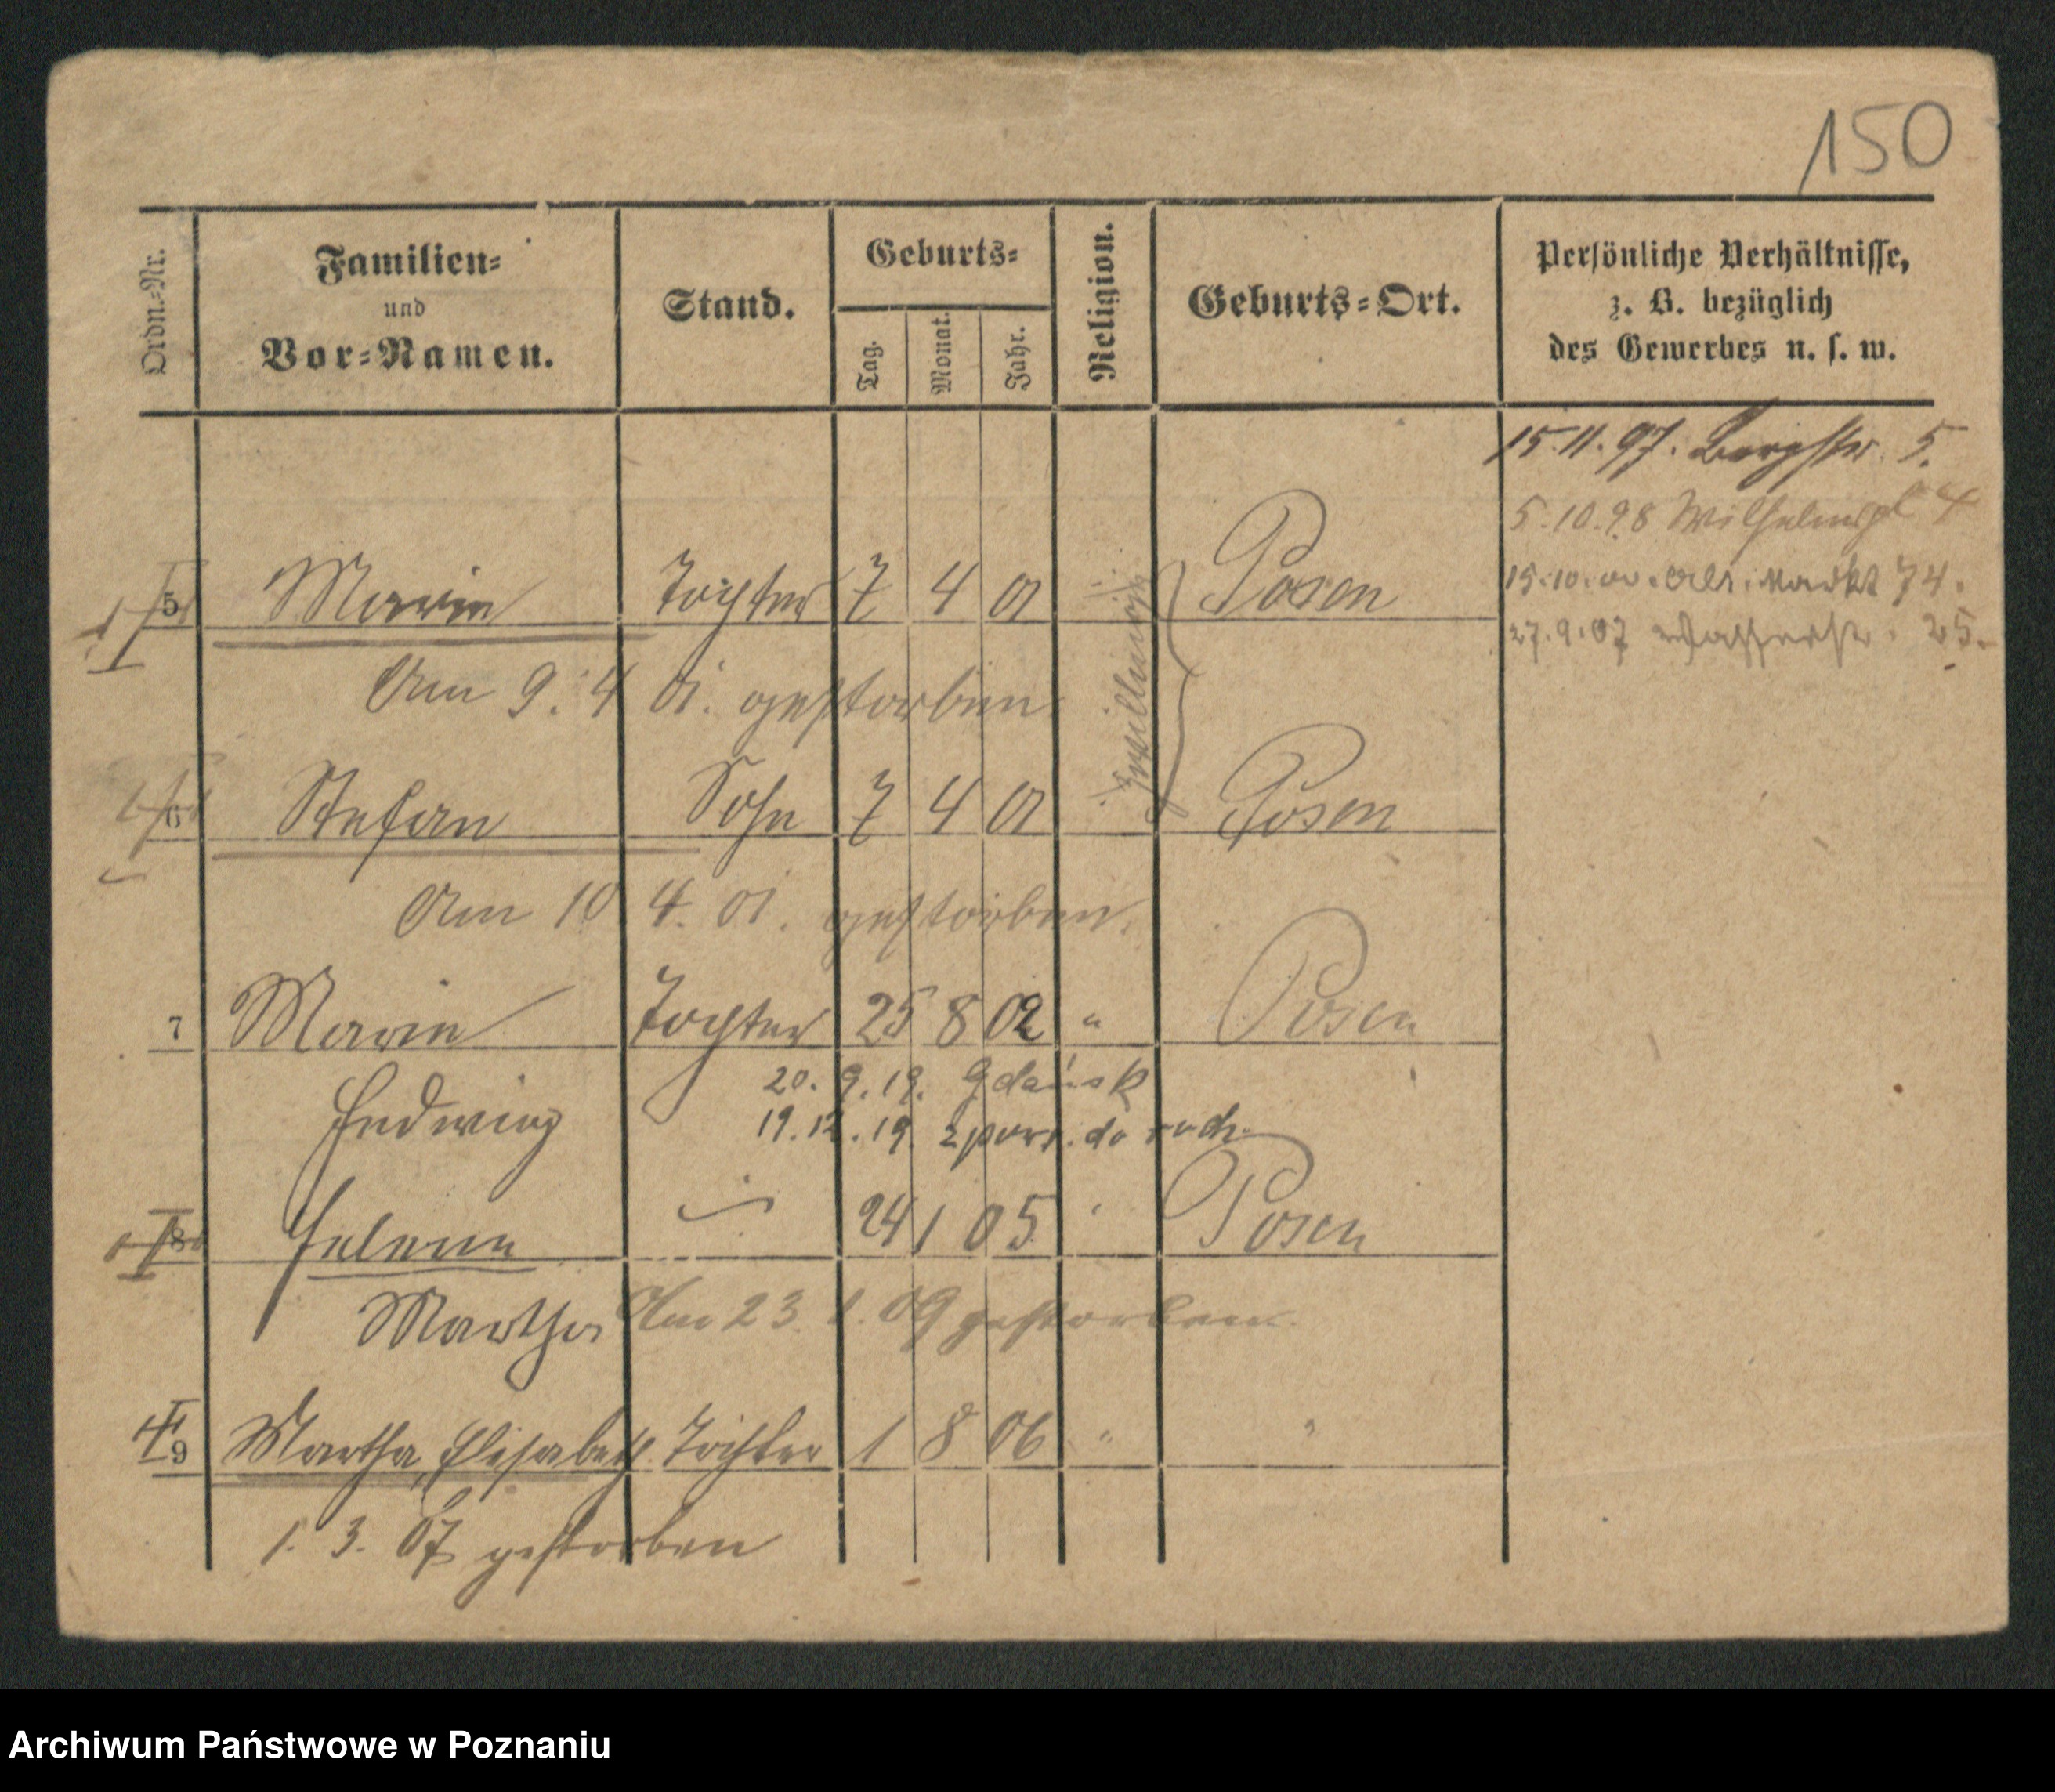 150
Ordn.-Nr.
Familien-
und
Vor-Namen.
Stand.
Geburts-
Tag.
Monat.
Jahr.
Religion.
Geburts-Ort.
Persönliche Verhältnisse,
z. B. bezüglich
des Gewerbes u. s. w.
15.11.97. Bergstr. 5.
5.10.98 Wilhelmspl 4
15.10.00. Alt. Markt 74.
27.9.07 Wasserstr. 25.
5 Marie Tochter 7 4 01 Posen
Am 9. 4 01. gestorben.
Zwillinge
6 Stefan Sohn 7 4 01 Posen
Am 10. 4. 01. gestorben.
7 Marie Tochter 25 8 02 " Posen
Hedwig
20. 9. 19. Gdańsk
19.12.19. z powr. do rodz.
8 Helene 24 1 05 Posen
Martha Am 23. 1. 09 gestorben.
9 Martha, Elisabeth Tochter 1 8 06 " "
1. 3. 07 gestorben
Archiwum Państwowe w Poznaniu